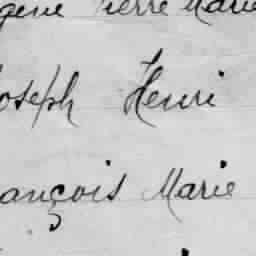 gène Pierre Marie
Joseph Henri
ançois Marie